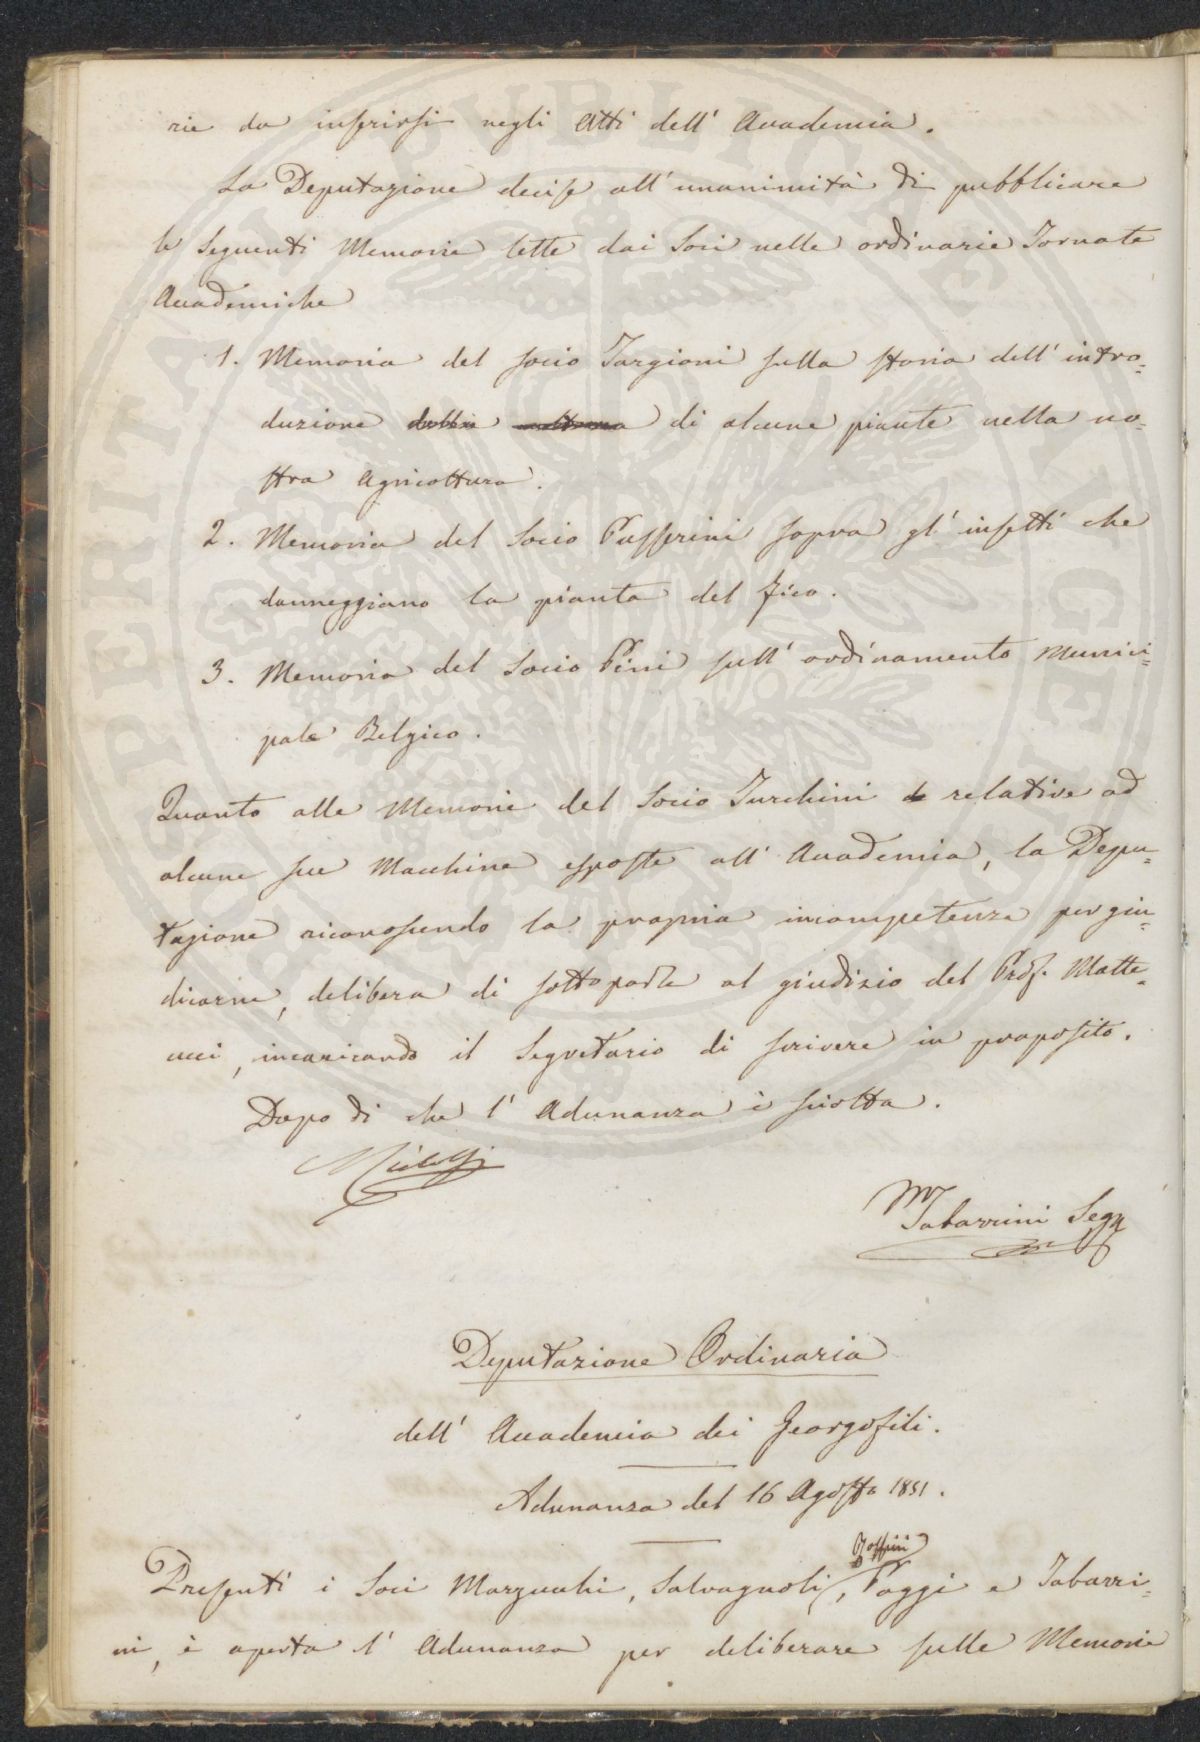 rie da inserirsi negli Atti dell' Accademia.
La Deputazione decise all' unanimità di pubblicare
le seguenti Memorie lette dai Soci nelle ordinarie Tornate
Accademiche
1. Memoria del socio Targioni sulla storia dell' intro=
duzione della di alcune piante nella no=
stra agricoltura.
2. Memoria del Socio Passerini sopra gl' insetti che
danneggiano la pianta del fico.
3. Memoria del Socio Pini sull' ordinamento Munici=
pale Belgico.
Quanto alle Memorie del Socio Turchini relative ad
alcune sue Macchine esposte all' Accademia, la Depu=
tazione riconoscendo la propria incompetenza per giu=
dicarne, delibera di sottoporle al giudizio del Prof. Matte=
ucci, incaricando il Segretario di scrivere in proposito.
Dopo di che l' Adunanza è sciolta.
M Tabarrini Seg
Deputazione Ordinaria
dell' Accademia dei Georgofili.
Adunanza del 16 Agosto 1851.
Presenti i Soci Marzucchi, Salvagnoli, Poggi e Tabarri=
ni, è aperta l' Adunanza per deliberare sulle Memorie
PUBLICAE